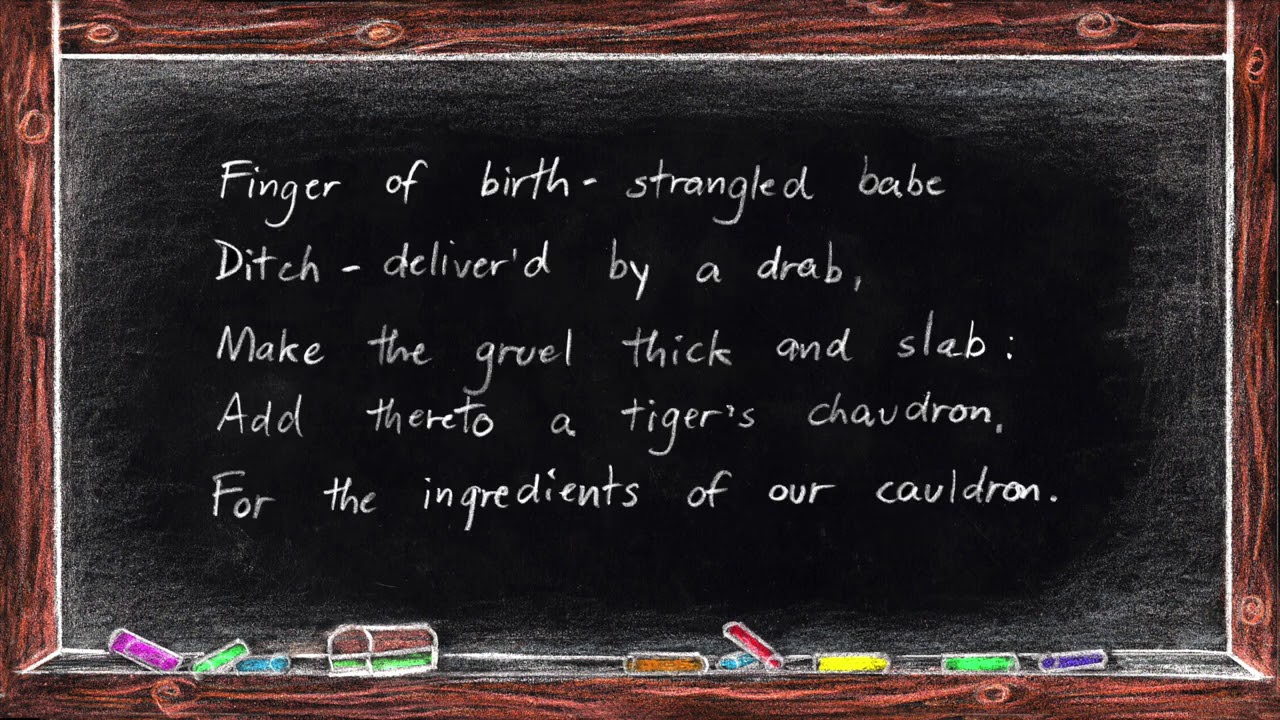 Finger of birth - strangled babe
Ditch - deliver'd by a drab,
Make the gruel thick and slab:
Add thereto a tiger's chaudron,
For the ingredients of our cauldron.